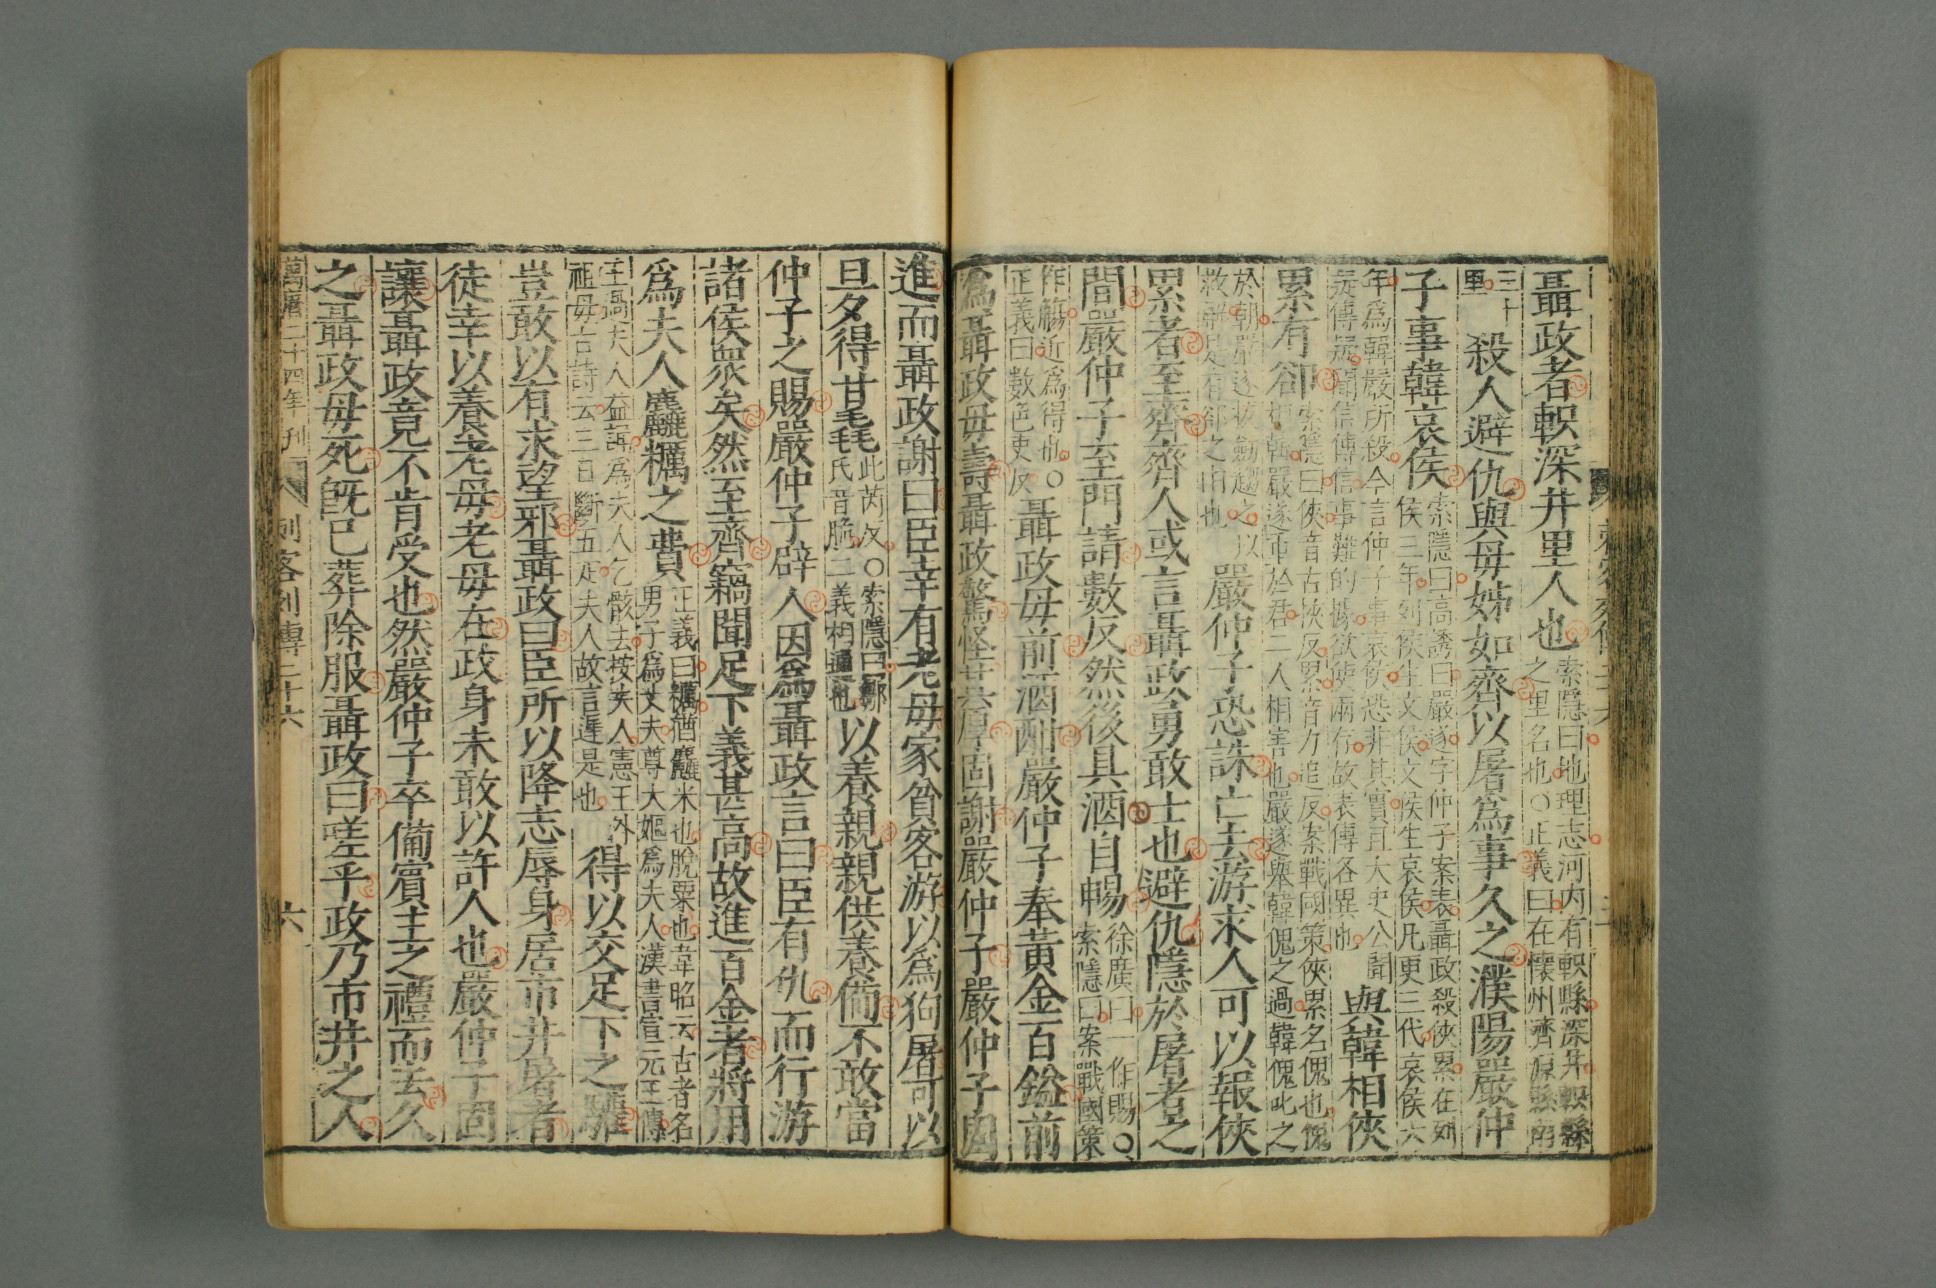 聶政者軹深井里人也索隱曰地理志河内有軹縣深井軹縣
之里名也○正義曰在懷州濟源縣南
三十
里
殺人避仇與母姊如齊以屠爲事久之濮陽嚴仲
子事韓哀侯索隱曰高誘曰嚴遂字仲子案表聶政殺俠累在列
侯三年列侯生文侯文侯生哀侯凡更三代哀侯六
年爲韓嚴所殺今言仲子事哀侯恐非其實且太史公聞
疑傳疑聞信傳信事難的據欲使兩存故表傳各異也
與韓相俠
累有郤索隱曰俠音古挾反累音力追反案戰國策俠累名傀也傀
相韓嚴遂重於君二人相害也嚴遂舉韓傀之過韓傀叱之
於朝嚴遂拔劍趨之以
救解是有郤之由也
嚴仲子恐誅亡去游求人可以報俠
累者至齊齊人或言聶政勇敢士也避仇隱於屠者之
間嚴仲子至門請數反然後具酒自暢徐廣曰一作賜○
索隱曰案戰國策
作觴近爲得也○
正義曰數色吏反
聶政母前酒酣嚴仲子奉黃金百鎰前
爲聶政母壽聶政驚怪其厚固謝嚴仲子嚴仲子固
進而聶政謝曰臣幸有老母家貧客游以爲狗屠可以
旦夕得甘毳此芮反○索隱曰鄒
氏音脆二義相通也
以養親親供養備不敢當
仲子之賜嚴仲子辟人因爲聶政言曰臣有仇而行游
諸侯衆矣然至齊竊聞足下義甚高故進百金者將用
爲夫人麤糲之費正義曰糲猶麤米也脫粟也韋昭云古者名
男子爲丈夫尊大嫗爲夫人漢書宣元王傳
王過夫人益詞爲夫人乞骸去按丈人憲王外
祖母古詩云三日斷五疋夫人故言遲是也
得以交足下之驩
豈敢以有求望邪聶政曰臣所以降志辱身居市井屠者
徒幸以養老母老母在政身未敢以許人也嚴仲子固
讓聶政竟不肯受也然嚴仲子卒備賓主之禮而去久
之聶政母死旣已葬除服聶政曰嗟乎政乃市井之人
萬曆二十四年刊
刺客列傳二十六
六